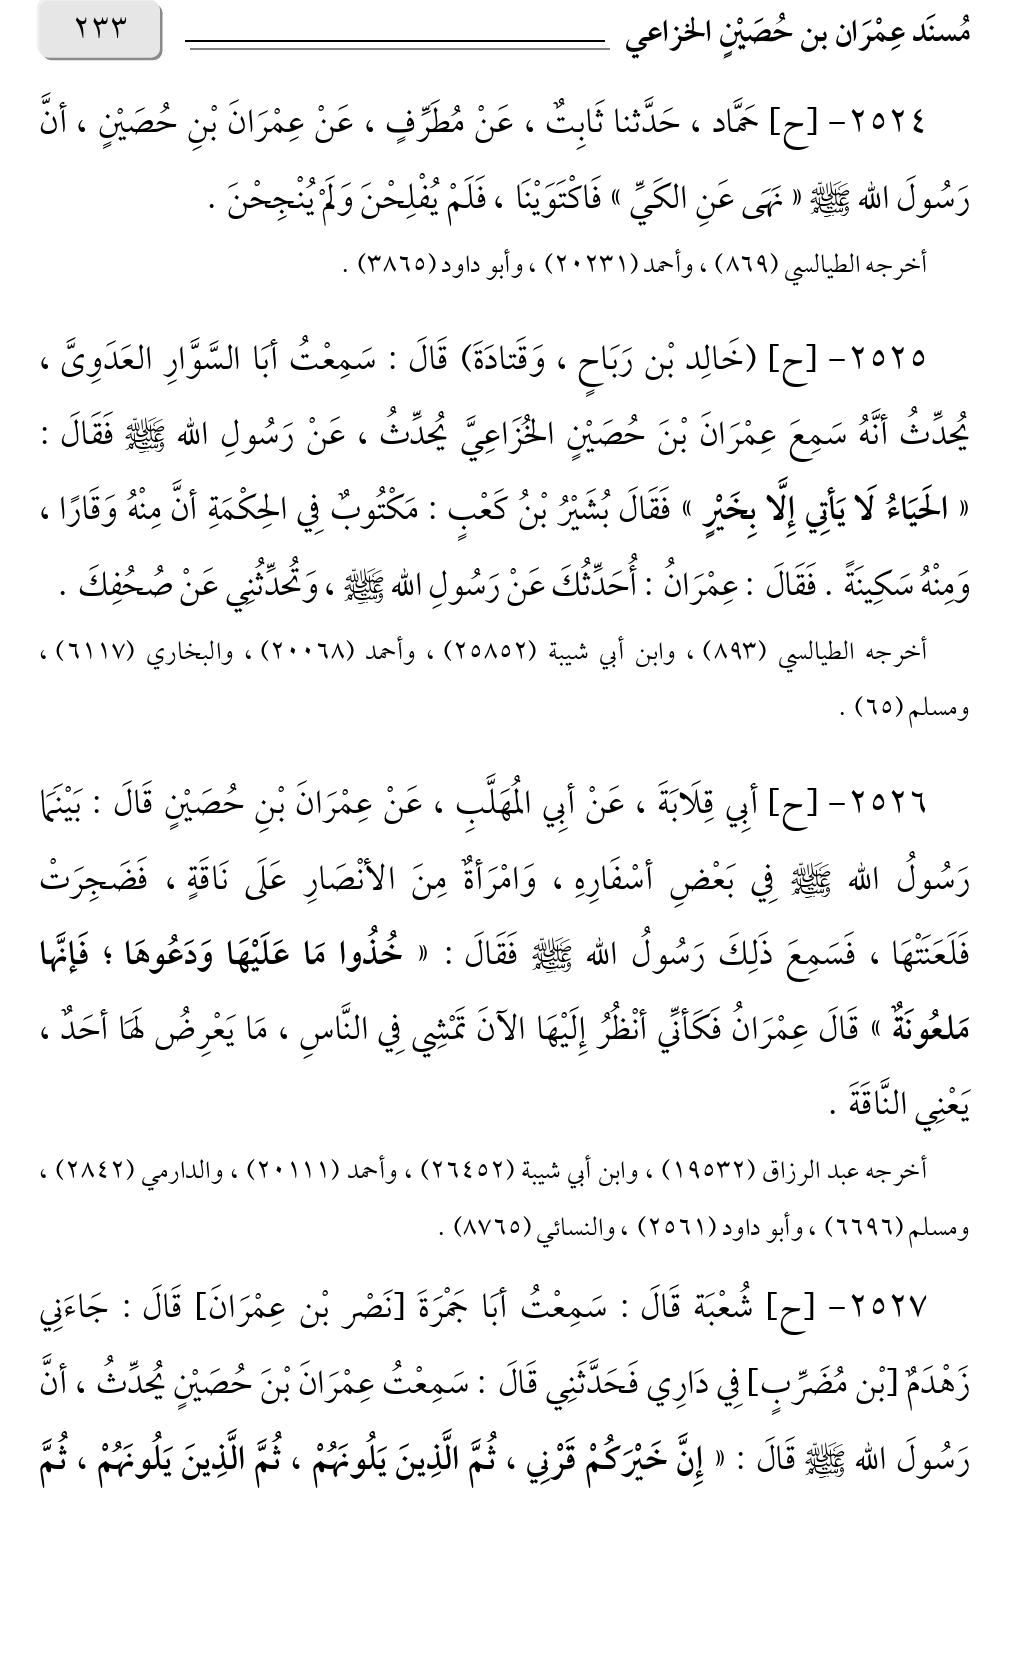 مُسنَد عِمْرَان بن حُصَيْنٍ الخزاعي ٢٣٣
٢٥٢٤- [ح] حَمَّاد ، حَدَّثنا ثَابِتٌ ، عَنْ مُطَرِّفٍ ، عَنْ عِمْرَانَ بْنِ حُصَيْنٍ ، أنَّ
رَسُولَ الله ﷺ « نَهَى عَنِ الكَيِّ » فَاكْتَوَيْنَا ، فَلَمْ يُفْلِحْنَ وَلَمْ يُنْجِحْنَ .
أخرجه الطيالسي (٨٦٩) ، وأحمد (٢٠٢٣١) ، وأبو داود (٣٨٦٥) .
٢٥٢٥- [ح] (خَالِد بْن رَبَاحٍ ، وَقَتادَةَ) قَالَ : سَمِعْتُ أبَا السَّوَّارِ العَدَوِىَّ ،
يُحدِّثُ أنَّهُ سَمِعَ عِمْرَانَ بْنَ حُصَيْنٍ الخُزَاعِيَّ يُحدِّثُ ، عَنْ رَسُولِ الله ﷺ فَقَالَ :
« الحَيَاءُ لَا يَأتِي إِلَّا بِخَيْرٍ » فَقَالَ بُشَيْرُ بْنُ كَعْبٍ : مَكْتُوبٌ فِي الحِكْمَةِ أنَّ مِنْهُ وَقَارًا ،
وَمِنْهُ سَكِينَةً . فَقَالَ : عِمْرَانُ : أُحَدِّثُكَ عَنْ رَسُولِ الله ﷺ ، وَتُحدِّثُنِي عَنْ صُحُفِكَ .
أخرجه الطيالسي (٨٩٣) ، وابن أبي شيبة (٢٥٨٥٢) ، وأحمد (٢٠٠٦٨) ، والبخاري (٦١١٧) ،
ومسلم (٦٥) .
٢٥٢٦- [ح] أبِي قِلَابَةَ ، عَنْ أبِي المُهَلَّبِ ، عَنْ عِمْرَانَ بْنِ حُصَيْنٍ قَالَ : بَيْنَمَا
رَسُولُ الله ﷺ فِي بَعْضِ أسْفَارِهِ ، وَامْرَأةٌ مِنَ الأنْصَارِ عَلَى نَاقَةٍ ، فَضَجِرَتْ
فَلَعَنَتْهَا ، فَسَمِعَ ذَلِكَ رَسُولُ الله ﷺ فَقَالَ : « خُذُوا مَا عَلَيْهَا وَدَعُوهَا ؛ فَإنَّها
مَلعُونَةٌ » قَالَ عِمْرَانُ فَكَأنِّي أنْظُرُ إِلَيْهَا الآنَ تَمْشِي فِي النَّاسِ ، مَا يَعْرِضُ لهَا أحَدٌ ،
يَعْنِي النَّاقَةَ .
أخرجه عبد الرزاق (١٩٥٣٢) ، وابن أبي شيبة (٢٦٤٥٢) ، وأحمد (٢٠١١١) ، والدارمي (٢٨٤٢) ،
ومسلم (٦٦٩٦) ، وأبو داود (٢٥٦١) ، والنسائي (٨٧٦٥) .
٢٥٢٧- [ح] شُعْبَة قَالَ : سَمِعْتُ أبَا جَمْرَةَ [نَصْر بْن عِمْرَانَ] قَالَ : جَاءَنِي
زَهْدَمٌ [بْن مُضَرِّبٍ] فِي دَارِي فَحَدَّثَنِي قَالَ : سَمِعْتُ عِمْرَانَ بْنَ حُصَيْنٍ يُحدِّثُ ، أنَّ
رَسُولَ الله ﷺ قَالَ : « إِنَّ خَيْرَكُمْ قَرْنِي ، ثُمَّ الَّذِينَ يَلُونَهُمْ ، ثُمَّ الَّذِينَ يَلُونَهُمْ ، ثُمَّ